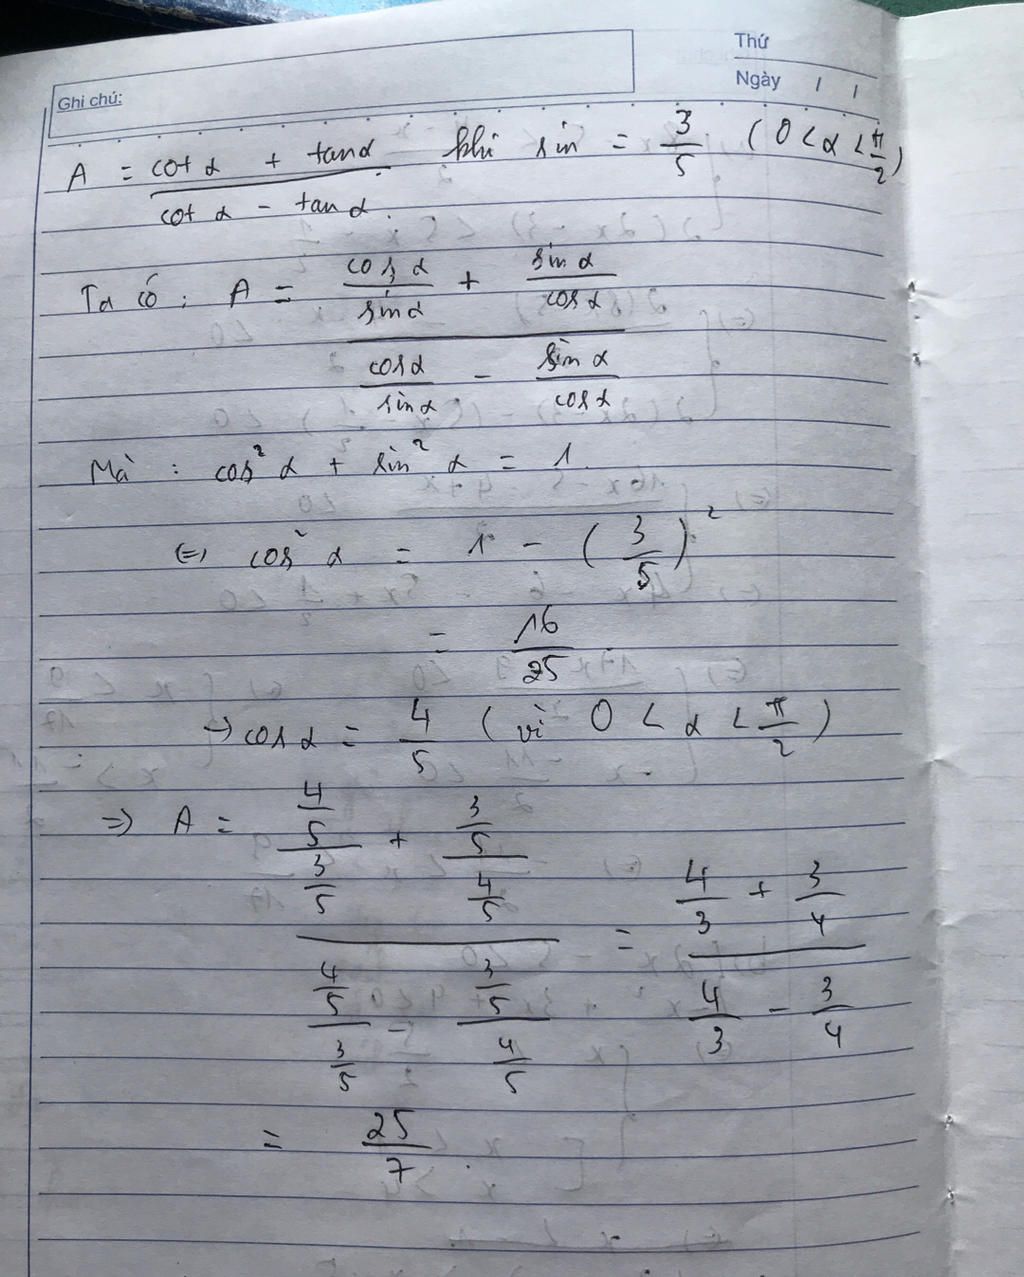 Thứ
Ghi chú: Ngày / /
A = (cot α + tan α) / (cot α - tan α) khi sin = 3/5 (0 < α < π/2)
Ta có : A = (cos α / sin α + sin α / cos α) / (cos α / sin α - sin α / cos α)
Mà : cos² α + sin² α = 1.
(=) cos² α = 1 - (3/5)²
= 16/25
→ cos α = 4/5 (vì 0 < α < π/2)
=> A = ((4/5)/(3/5) + (3/5)/(4/5)) / ((4/5)/(3/5) - (3/5)/(4/5)) = (4/3 + 3/4) / (4/3 - 3/4)
= 25/7.